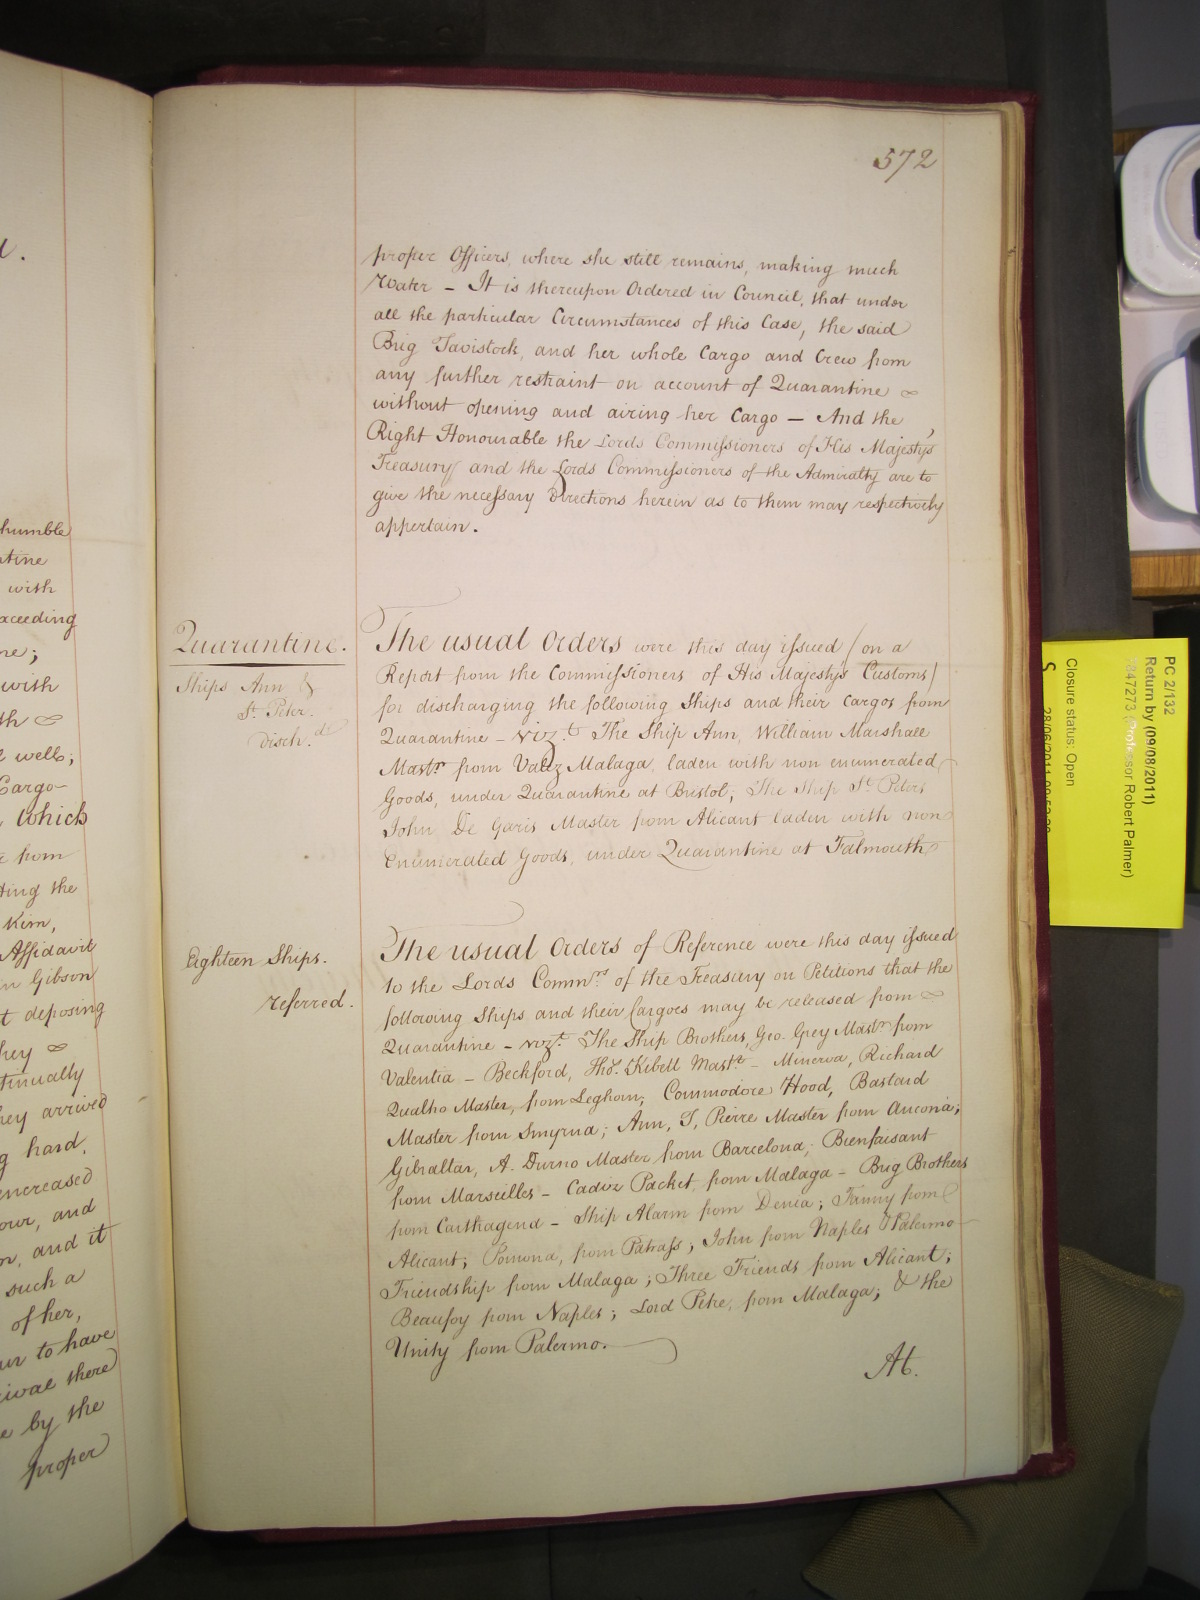 572
proper Officers, where she still remains, making much
Water – It is thereupon Ordered in Council, that under
all the particular Circumstances of this Case, the said
Brig Tavistock, and her whole Cargo and Crew from
any further restraint on account of Quarantine
without opening and airing her Cargo – And the
Right Honourable the Lords Commissioners of His Majesty's
Treasury and the Lords Commissioners of the Admiralty are to
give the necessary Directions herein as to them may respectively
appertain.
Quarantine.
Ships Ann &
St. Peter.
Disch.d
The usual Orders were this day issued (on a
Report from the Commissioners of His Majestys Customs)
for discharging the following Ships and their Cargos from
Quarantine – vizt. The Ship Ann, William Marshall
Mastr from Malaga, laden with non enumerated
Goods, under Quarantine at Bristol; The Ship St. Peters
John De Garis Master from Alicant laden with non
Enumerated Goods, under Quarantine at Falmouth
Eighteen Ships.
referred.
The usual Orders of Reference were this day issued
to the Lords Commrs. of the Treasury on Petitions that the
following Ships and their Cargoes may be released from
Quarantine – vizt. The Ship Brothers, Geo. Grey Mastr from
Valentia – Beckford, Thos. Kibell Mastr – Minerva, Richard
Qualho Master, from Leghorn; Commodore Hood, Bastard
Master from Smyrna; Ann, J, Pierre Master from Ancona;
Gibraltar, A. Durno Master from Barcelona; Bienfaisant
from Marseilles – Cadiz Packet, from Malaga – Brig Brothers
from Carthagena – Ship Alarm from Denia; Fanny from
Alicant; Pomona, from Patrass; John from Naples & Palermo
Friendship from Malaga; Three Friends from Alicant;
Beaufoy from Naples; Lord Petre, from Malaga; & the
Unity from Palermo.
At.
humble
with
exceeding
with
well;
Cargo
Which
from
the
Kirn,
Affidavit
Gibson
deposing
they
continually
they arrived
hard,
encreased
and
and it
such a
of her,
to have
there
by the
proper
PC 2/132
Return by (09/08/2011)
847273 (Professor Robert Palmer)
Closure status: Open
S